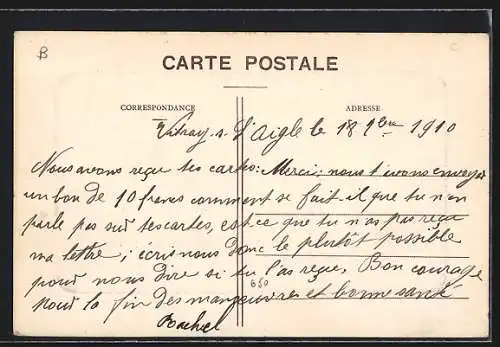 B
C
CARTE POSTALE
CORRESPONDANCE
ADRESSE
Vitray s. L'Aigle le 18 9bre 1910
Nous avons reçu tes cartes: Merci; nous t'avons envoyé
un bon de 10 francs comment se fait il que tu n'en
parle pas sur tes cartes, est ce que tu n'as pas reçu
ma lettre; écris nous donc le plutôt possible
pour nous dire si tu l'as reçue. Bon courage
pour la fin des manœuvres et bonne santé
650
Rachel